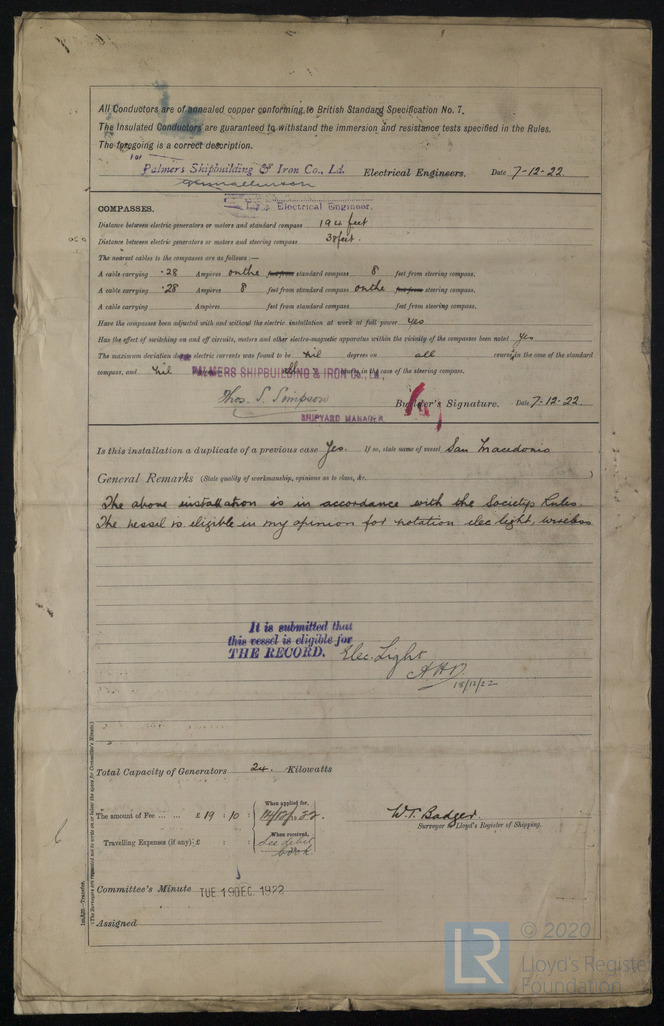 All Conductors are of annealed copper conforming to British Standard Specification No. 7.
The Insulated Conductors are guaranteed to withstand the immersion and resistance tests specified in the Rules.
The foregoing is a correct description.
for
Palmers Shipbuilding & Iron Co., Ld. Electrical Engineers. Date 7-12-22.
Electrical Engineer.
COMPASSES.
Distance between electric generators or motors and standard compass 194 feet
Distance between electric generators or motors and steering compass 38 feet.
The nearest cables to the compasses are as follows:—
A cable carrying .28 Ampères on the standard compass 8 feet from steering compass.
A cable carrying .28 Ampères 8 feet from standard compass on the steering compass.
A cable carrying Ampères feet from standard compass feet from steering compass.
Have the compasses been adjusted with and without the electric installation at work at full power Yes
Has the effect of switching on and off circuits, motors and other electro-magnetic apparatus within the vicinity of the compasses been noted Yes
The maximum deviation due to electric currents was found to be Nil degrees on all courses in the case of the standard
compass, and Nil degrees on all courses in the case of the steering compass.
PALMERS SHIPBUILDING & IRON CO., LD.,
Thos. S. Simpson Builder's Signature. Date 7-12-22.
SHIPYARD MANAGER.
Is this installation a duplicate of a previous case Yes. If so, state name of vessel San Macedonio
General Remarks (State quality of workmanship, opinions as to class, &c.)
The above installation is in accordance with the Societys Rules.
The vessel is eligible in my opinion for notation elec light, wireless
It is submitted that
this vessel is eligible for
THE RECORD. Elec. Light
18/12/22
Total Capacity of Generators 24. Kilowatts
The amount of Fee ... ... £ 19 : 10 : When applied for, 14/12/22.
W.T. Badger.
Surveyor to Lloyd's Register of Shipping.
Travelling Expenses (if any) £ : : When received,
See debit
book
Committee's Minute TUE. 19 DEC. 1922
Assigned
(The Surveyors are requested not to write on or below the space for Committee's Minute.)
Transfer.
LR
© 2020
Lloyd's Register
Foundation